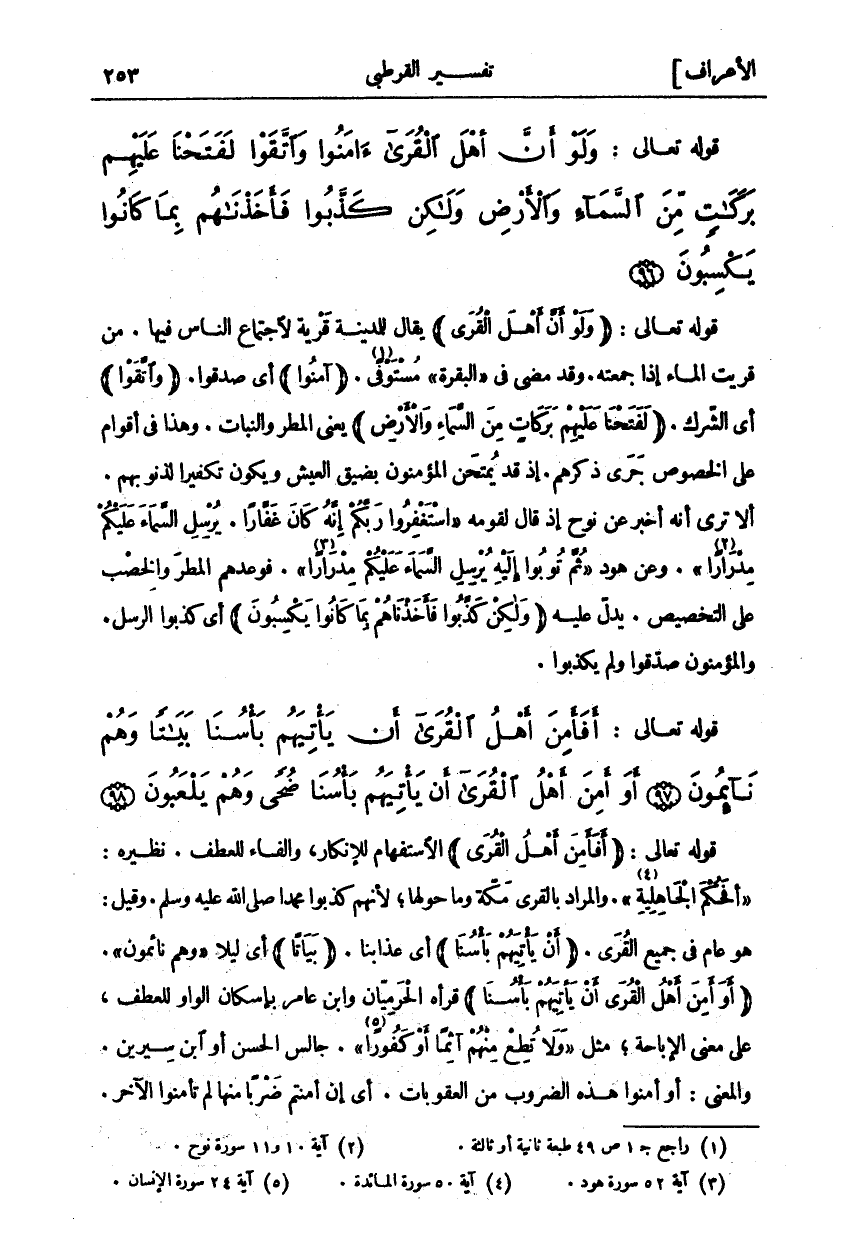 الأعراف] تفسير القرطبي ٢٥٣
قوله تعالى : وَلَوْ أَنَّ أَهْلَ ٱلْقُرَىٰٓ ءَامَنُوا وَٱتَّقَوْا لَفَتَحْنَا عَلَيْهِم
بَرَكَٰتٍ مِّنَ ٱلسَّمَآءِ وَٱلْأَرْضِ وَلَٰكِن كَذَّبُوا فَأَخَذْنَٰهُم بِمَا كَانُوا
يَكْسِبُونَ ﴿٩٦﴾
قوله تعالى : ( وَلَوْ أَنَّ أَهْلَ الْقُرَى ) يقال للمدينة قَرْية لاجتماع الناس فيها . من
قريت الماء إذا جمعته . وقد مضى فى «البقرة» مُسْتَوْفًى (١) . ( آمَنُوا ) أى صدقوا . ( وَاتَّقَوْا )
أى الشّرك . ( لَفَتَحْنَا عَلَيْهِمْ بَرَكَاتٍ مِنَ السَّمَاءِ وَالْأَرْضِ ) يعنى المطر والنبات . وهذا فى أقوام
على الخصوص جَرَى ذكرهم . إذ قد يُمتحَن المؤمنون بضيق العيش ويكون تكفيرا لذنوبهم .
ألا ترى أنه أخبر عن نوح إذ قال لقومه «اسْتَغْفِرُوا رَبَّكُمْ إِنَّهُ كَانَ غَفَّارًا . يُرْسِلِ السَّمَاءَ عَلَيْكُمْ
مِدْرَارًا (٢)» . وعن هود «ثُمَّ تُوبُوا إِلَيْهِ يُرْسِلِ السَّمَاءَ عَلَيْكُمْ مِدْرَارًا (٣)» . فوعدهم المطرَ والخِصْب
على التخصيص . يدلّ عليه ( وَلَكِنْ كَذَّبُوا فَأَخَذْنَاهُمْ بِمَا كَانُوا يَكْسِبُونَ ) أى كذبوا الرسل .
والمؤمنون صدّقوا ولم يكذبوا .
قوله تعالى : أَفَأَمِنَ أَهْلُ ٱلْقُرَىٰٓ أَن يَأْتِيَهُم بَأْسُنَا بَيَٰتًا وَهُمْ
نَآئِمُونَ ﴿٩٧﴾ أَوَ أَمِنَ أَهْلُ ٱلْقُرَىٰٓ أَن يَأْتِيَهُم بَأْسُنَا ضُحًى وَهُمْ يَلْعَبُونَ ﴿٩٨﴾
قوله تعالى : ( أَفَأَمِنَ أَهْلُ الْقُرَى ) الاستفهام للإنكار، والفاء للعطف . نظيره :
«أَفَحُكْمَ الْجَاهِلِيَّةِ (٤)» . والمراد بالقرى مكّة وما حولها ؛ لأنهم كذبوا محمدا صلى الله عليه وسلم . وقيل :
هو عام فى جميع القُرَى . ( أَنْ يَأْتِيَهُمْ بَأْسُنَا ) أى عذابنا . ( بَيَاتًا ) أى ليلا «وهم نائمون» .
( أَوَ أَمِنَ أَهْلُ الْقُرَى أَنْ يَأْتِيَهُمْ بَأْسُنَا ) قرأه الحَرَمِيّان وابن عامر بإسكان الواو للعطف ،
على معنى الإباحة ؛ مثل «وَلَا تُطِعْ مِنْهُمْ آثِمًا أَوْ كَفُورًا (٥)» . جالس الحسن أو ابن سيرين .
والمعنى : أو أمنوا هذه الضروب من العقوبات . أى إن أمنتم ضَرْبًا منها لم تأمنوا الآخر .
(١) راجع جـ ١ ص ٤٩ طبعة ثانية أو ثالثة . (٢) آية ١٠ و١١ سورة نوح .
(٣) آية ٥٢ سورة هود . (٤) آية ٥٠ سورة المائدة . (٥) آية ٢٤ سورة الإنسان .